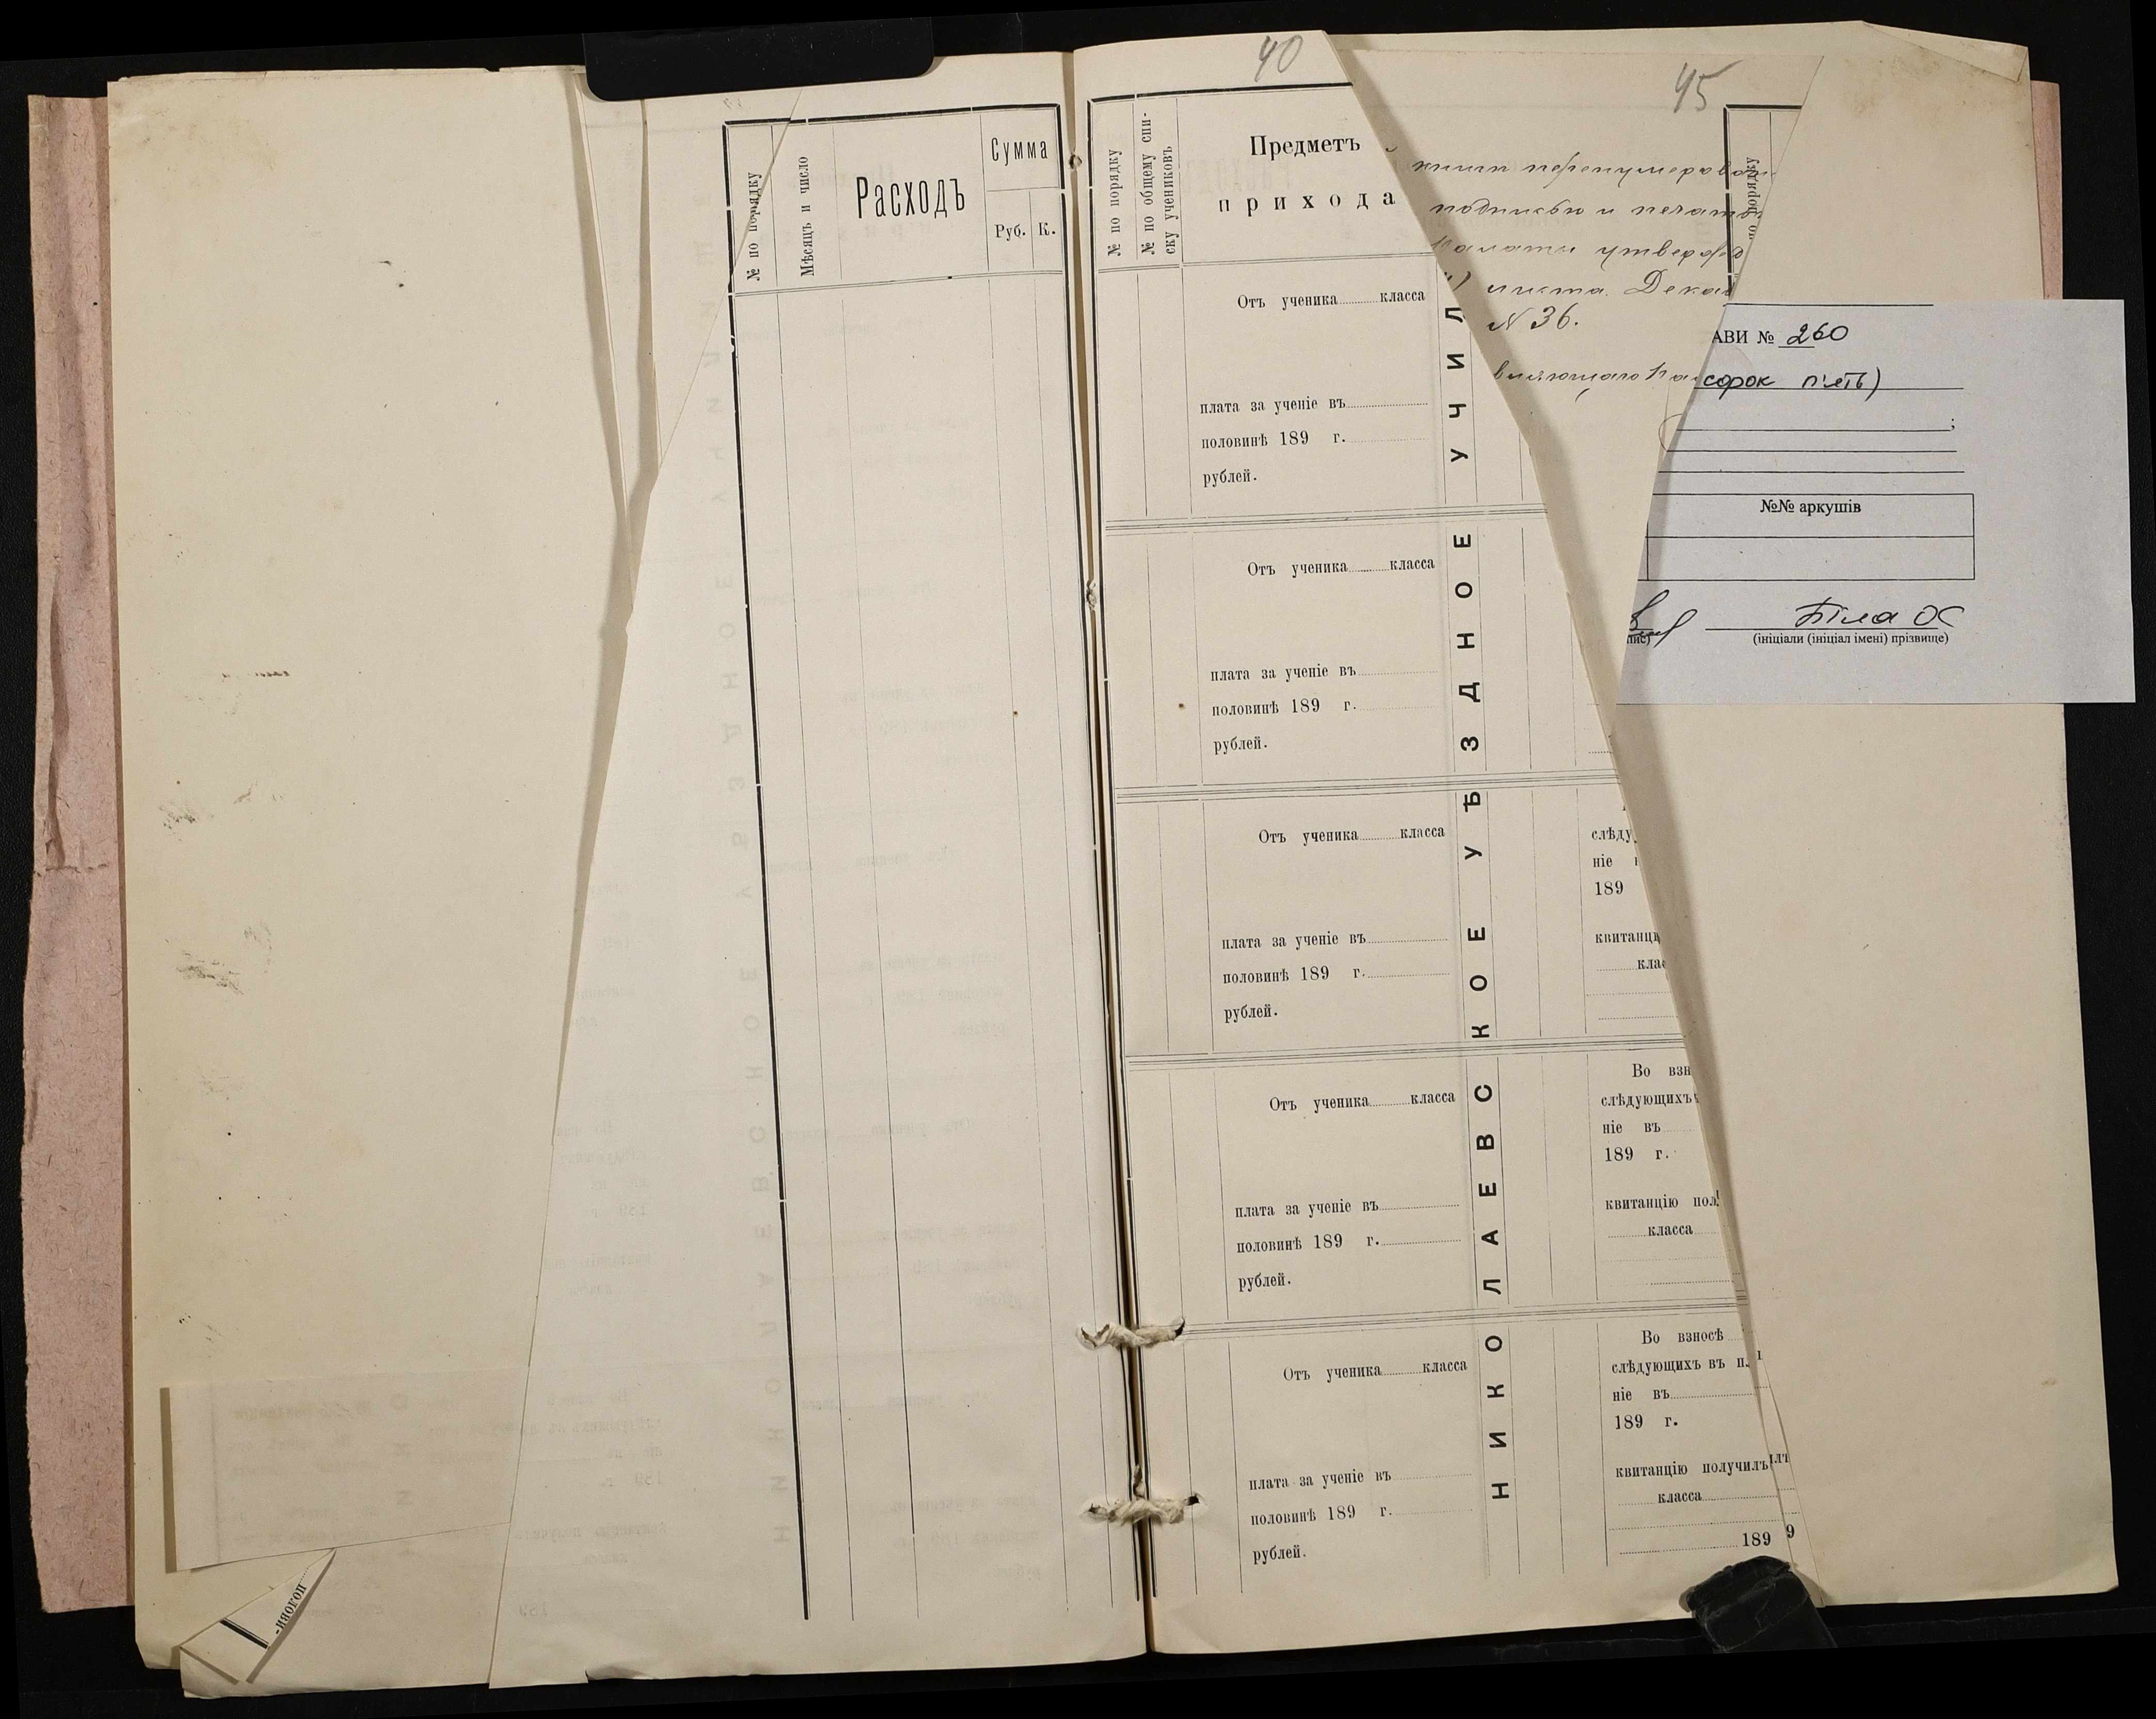 № по порядку
Мѣсяцъ и число
Расходъ
Сумма
Руб. К.
половн-
40
№ по порядку
№ по общему спи-
ску учениковъ
Предметъ
прихода
Отъ ученика класса
плата за ученіе въ
половинѣ 189 г.
рублей.
Отъ ученика класса
плата за ученіе въ
половинѣ 189 г.
рублей.
Отъ ученика класса
плата за ученіе въ
половинѣ 189 г.
рублей.
Отъ ученика класса
плата за ученіе въ
половинѣ 189 г.
рублей.
Отъ ученика класса
плата за ученіе въ
половинѣ 189 г.
рублей.
НИКОЛАЕВСКОЕ УѢЗДНОЕ УЧИЛ
слѣду
ніе
189
квитанці
клас
Во взн
слѣдующихъ
ніе въ
189 г.
квитанцію пол
класса
Во взносѣ
слѣдующихъ въ пл
ніе въ
189 г.
квитанцію получилъ
класса
189
9
45
по порядку
листа. Декаб
N 36.
АВИ № 260
сорок п'ять)
;
№№ аркушів
пис)
Біла ОС
(ініціали (ініціал імені) прізвище)